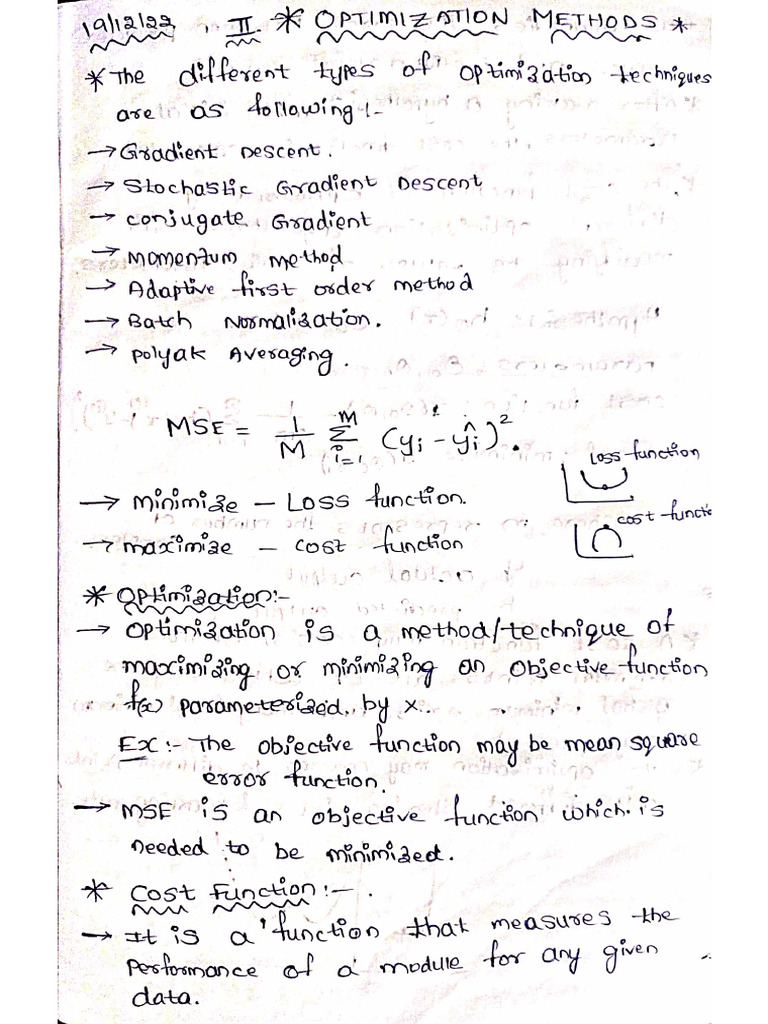 19/12/22 . II * OPTIMIZATION METHODS *
* The different types of optimization techniques
are as following :-
→ Gradient Descent.
→ Stochastic Gradient Descent
→ conjugate Gradient
→ Momentum method
→ Adaptive first order method
→ Batch Normalization.
→ Polyak Averaging.
MSE = 1/M Σ_{i=1}^{M} (yi - ŷi)².
loss function
→ Minimize - Loss function.
cost functi
→ maximize - cost function
* Optimization:-
→ Optimization is a method/technique of
maximizing or minimizing an objective function
f(x) parameterized by x.
Ex :- The objective function may be mean square
error function.
→ MSE is an objective function which is
needed to be minimized.
* Cost Function :-
→ It is a function that measures the
performance of a module for any given
data.